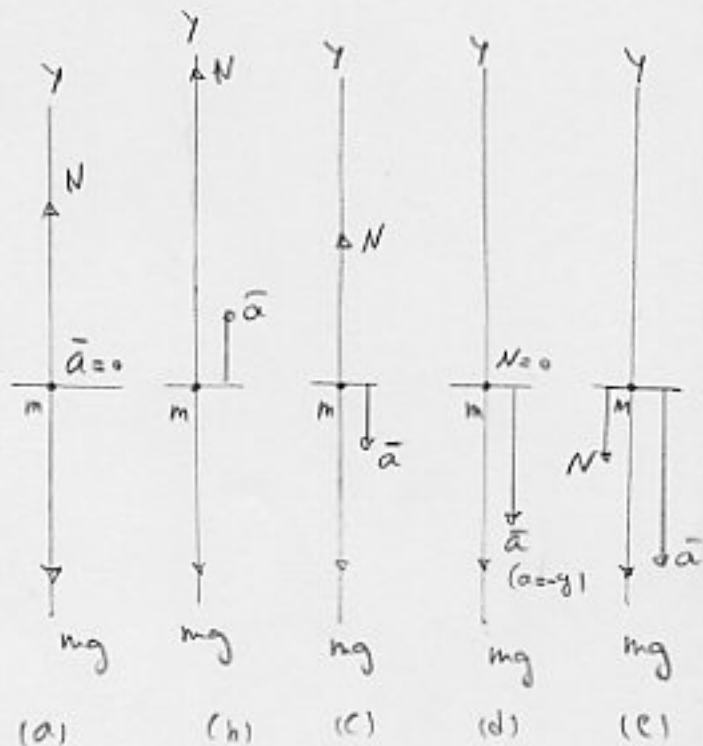 Y
N
ā=0
m
mg
(a)
Y
N
ā
m
mg
(h)
Y
N
m
ā
mg
(c)
Y
N=0
m
ā
(a=-g)
mg
(d)
Y
M
N
ā
mg
(e)